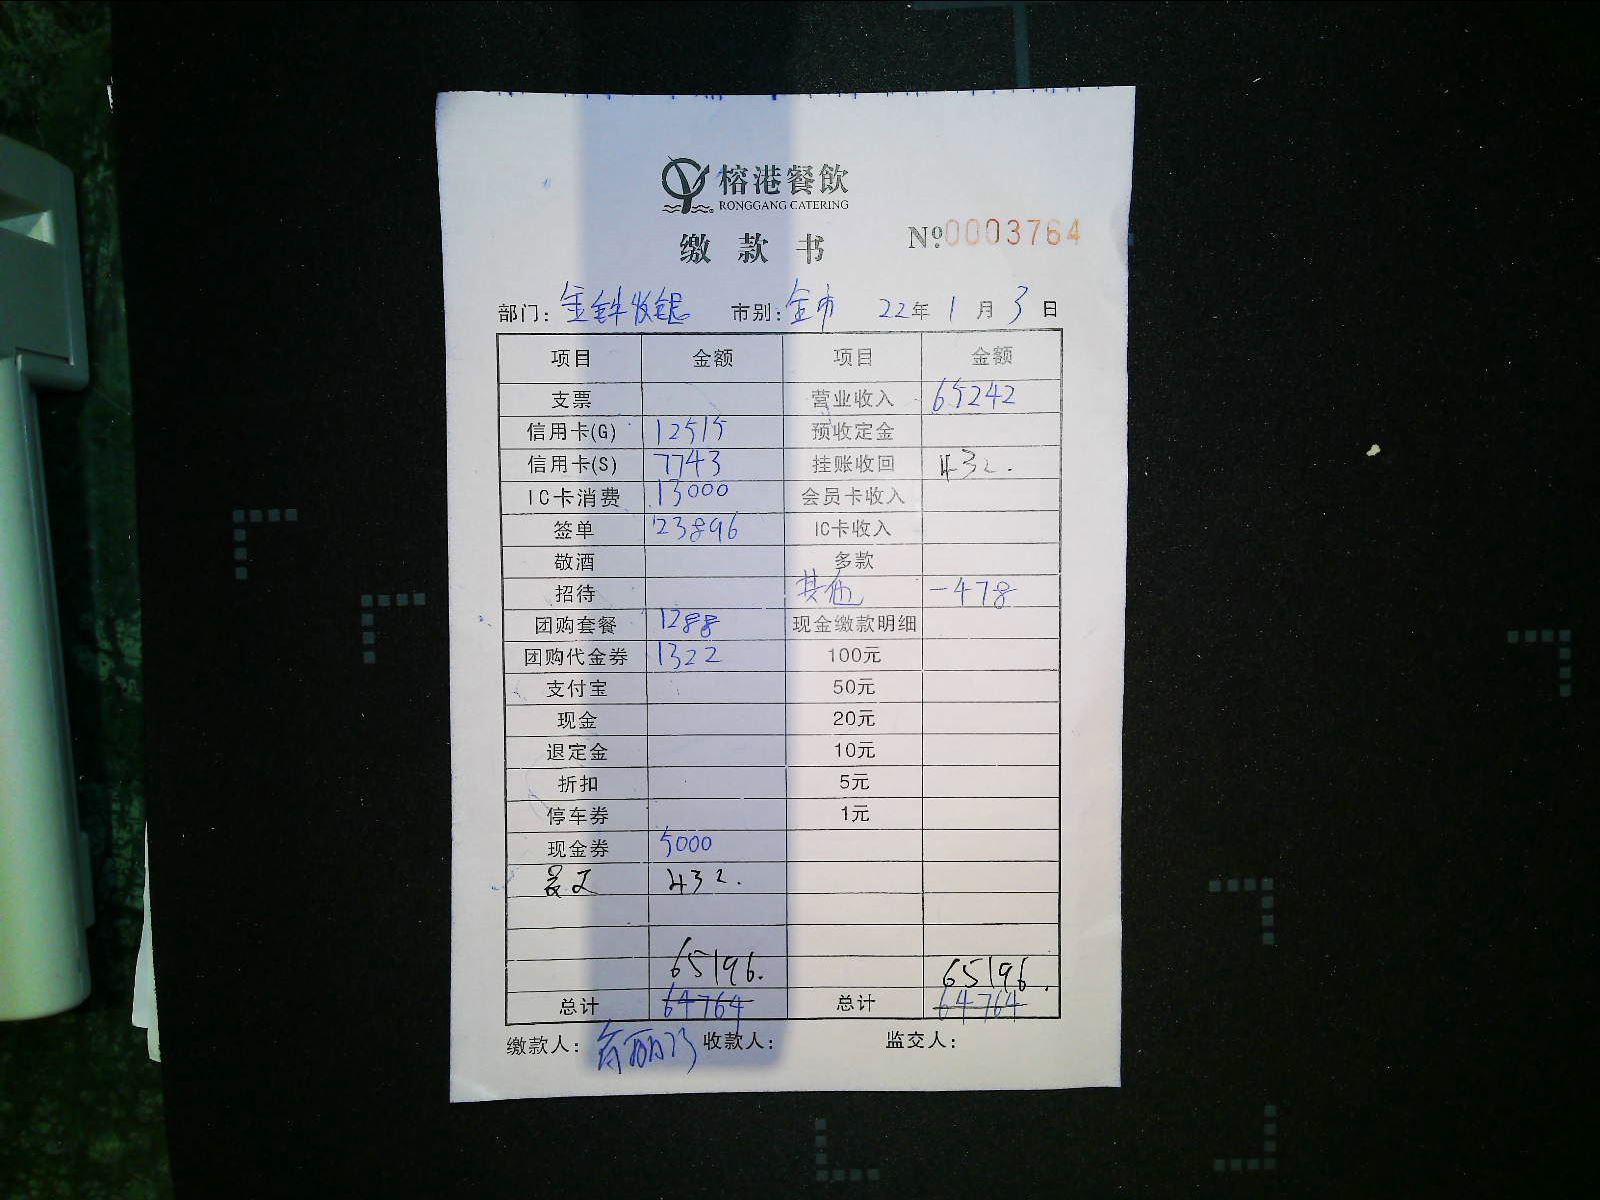 榕港餐飲
RONGGANG CATERING
缴款书
Nº:0003764
部门: 金钻收银 市别: 全市 22年 1月 3日
项目 金额 项目 金额
支票 营业收入 65242
信用卡(G) 12515 预收定金
信用卡(S) 7743 挂账收回 432.
IC卡消费 13000 会员卡收入
签单 23896 IC卡收入
敬酒 多款
招待 其他 -478
团购套餐 1288 现金缴款明细
团购代金券 1322 100元
支付宝 50元
现金 20元
退定金 10元
折扣 5元
停车券 1元
现金券 5000
432.
65196. 65196.
总计 64764 总计 64764
缴款人: 收款人: 监交人: